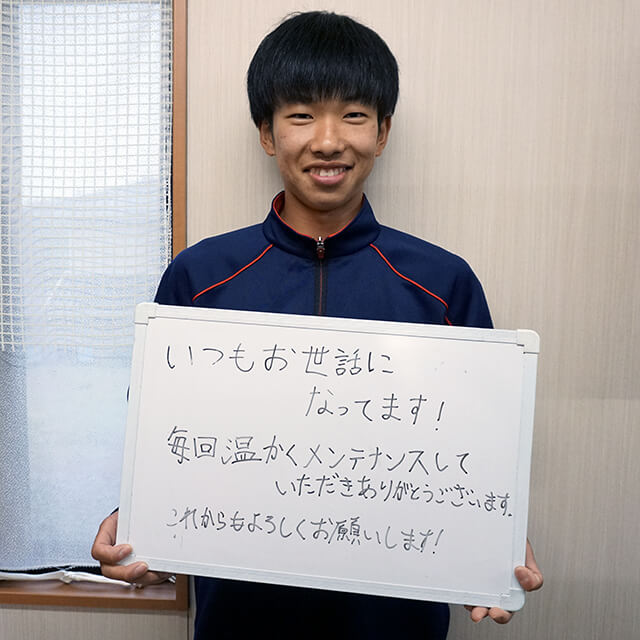 いつもお世話に
なってます!
毎回、温かくメンテナンスして
いただきありがとうございます。
これからもよろしくお願いします!